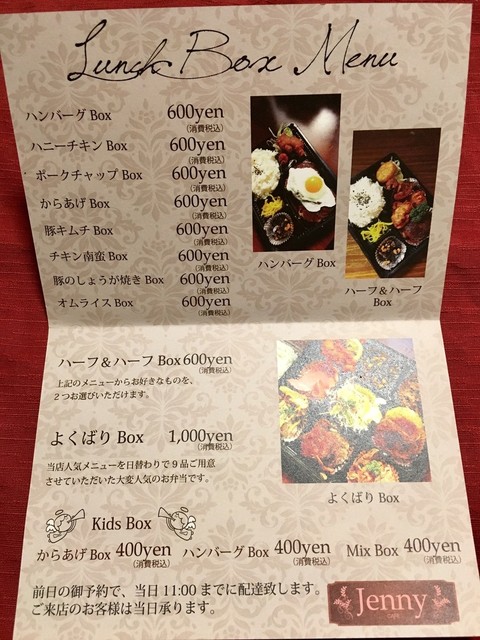 Lunch Box Menu
ハンバーグ Box 600yen
(消費税込)
ハニーチキン Box 600yen
(消費税込)
ポークチャップ Box 600yen
(消費税込)
からあげ Box 600yen
(消費税込)
豚キムチ Box 600yen
(消費税込)
チキン南蛮 Box 600yen
(消費税込)
豚のしょうが焼き Box 600yen
(消費税込)
オムライス Box 600yen
(消費税込)
ハンバーグ Box
ハーフ＆ハーフ
Box
ハーフ＆ハーフ Box 600yen
(消費税込)
上記のメニューからお好きなものを、
２つお選びいただけます。
よくばり Box 1,000yen
(消費税込)
当店人気メニューを日替わりで９品ご用意
させていただいた大変人気のお弁当です。
よくばり Box
Kids Box
からあげ Box 400yen ハンバーグ Box 400yen Mix Box 400yen
(消費税込) (消費税込) (消費税込)
前日の御予約で、当日 11:00 までに配達致します。
ご来店のお客様は当日承ります。
Jenny